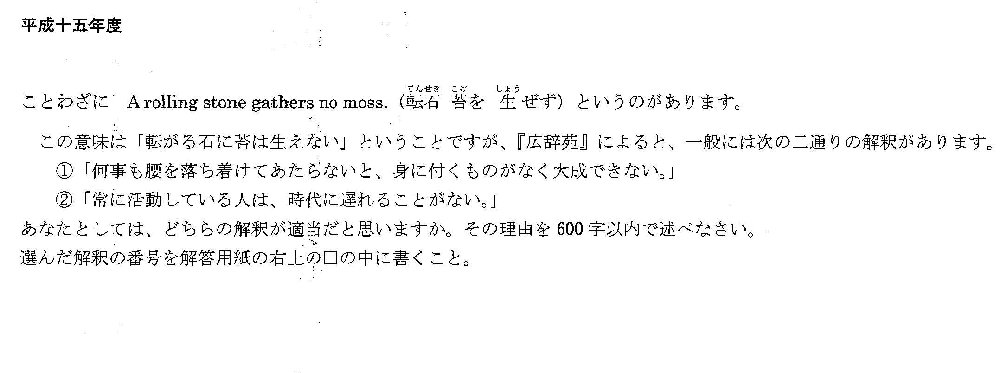 平成十五年度
ことわざに A rolling stone gathers no moss.（転石 苔を 生ぜず）というのがあります。
この意味は「転がる石に苔は生えない」ということですが、『広辞苑』によると、一般には次の二通りの解釈があります。
①「何事も腰を落ち着けてあたらないと、身に付くものがなく大成できない。」
②「常に活動している人は、時代に遅れることがない。」
あなたとしては、どちらの解釈が適当だと思いますか。その理由を 600 字以内で述べなさい。
選んだ解釈の番号を解答用紙の右上の□の中に書くこと。